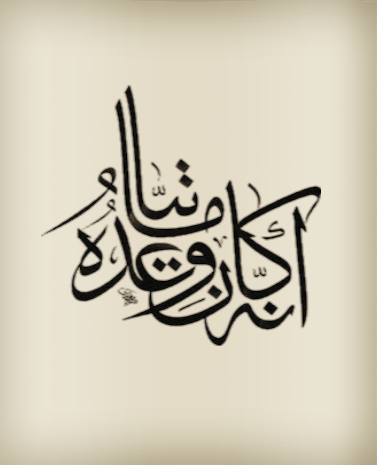 انّه كان وعدُهُ ماتيّا